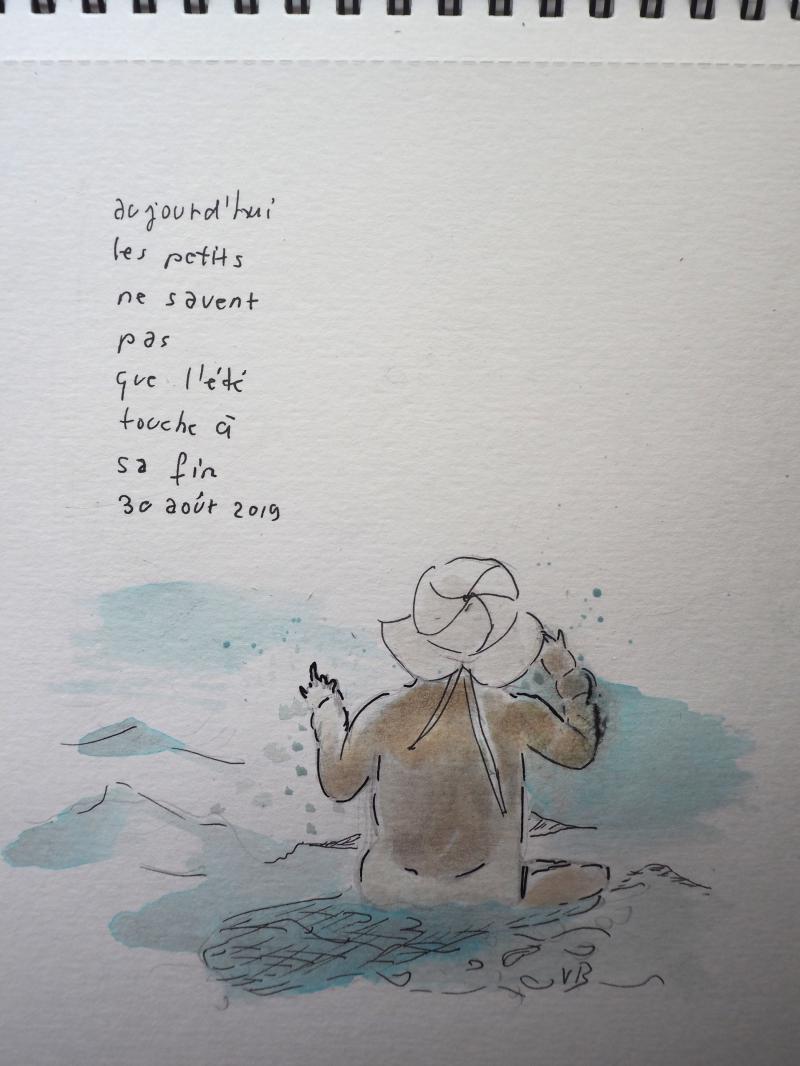 aujourd'hui
les petits
ne savent
pas
que l'été
touche à
sa fin
30 août 2019
VB